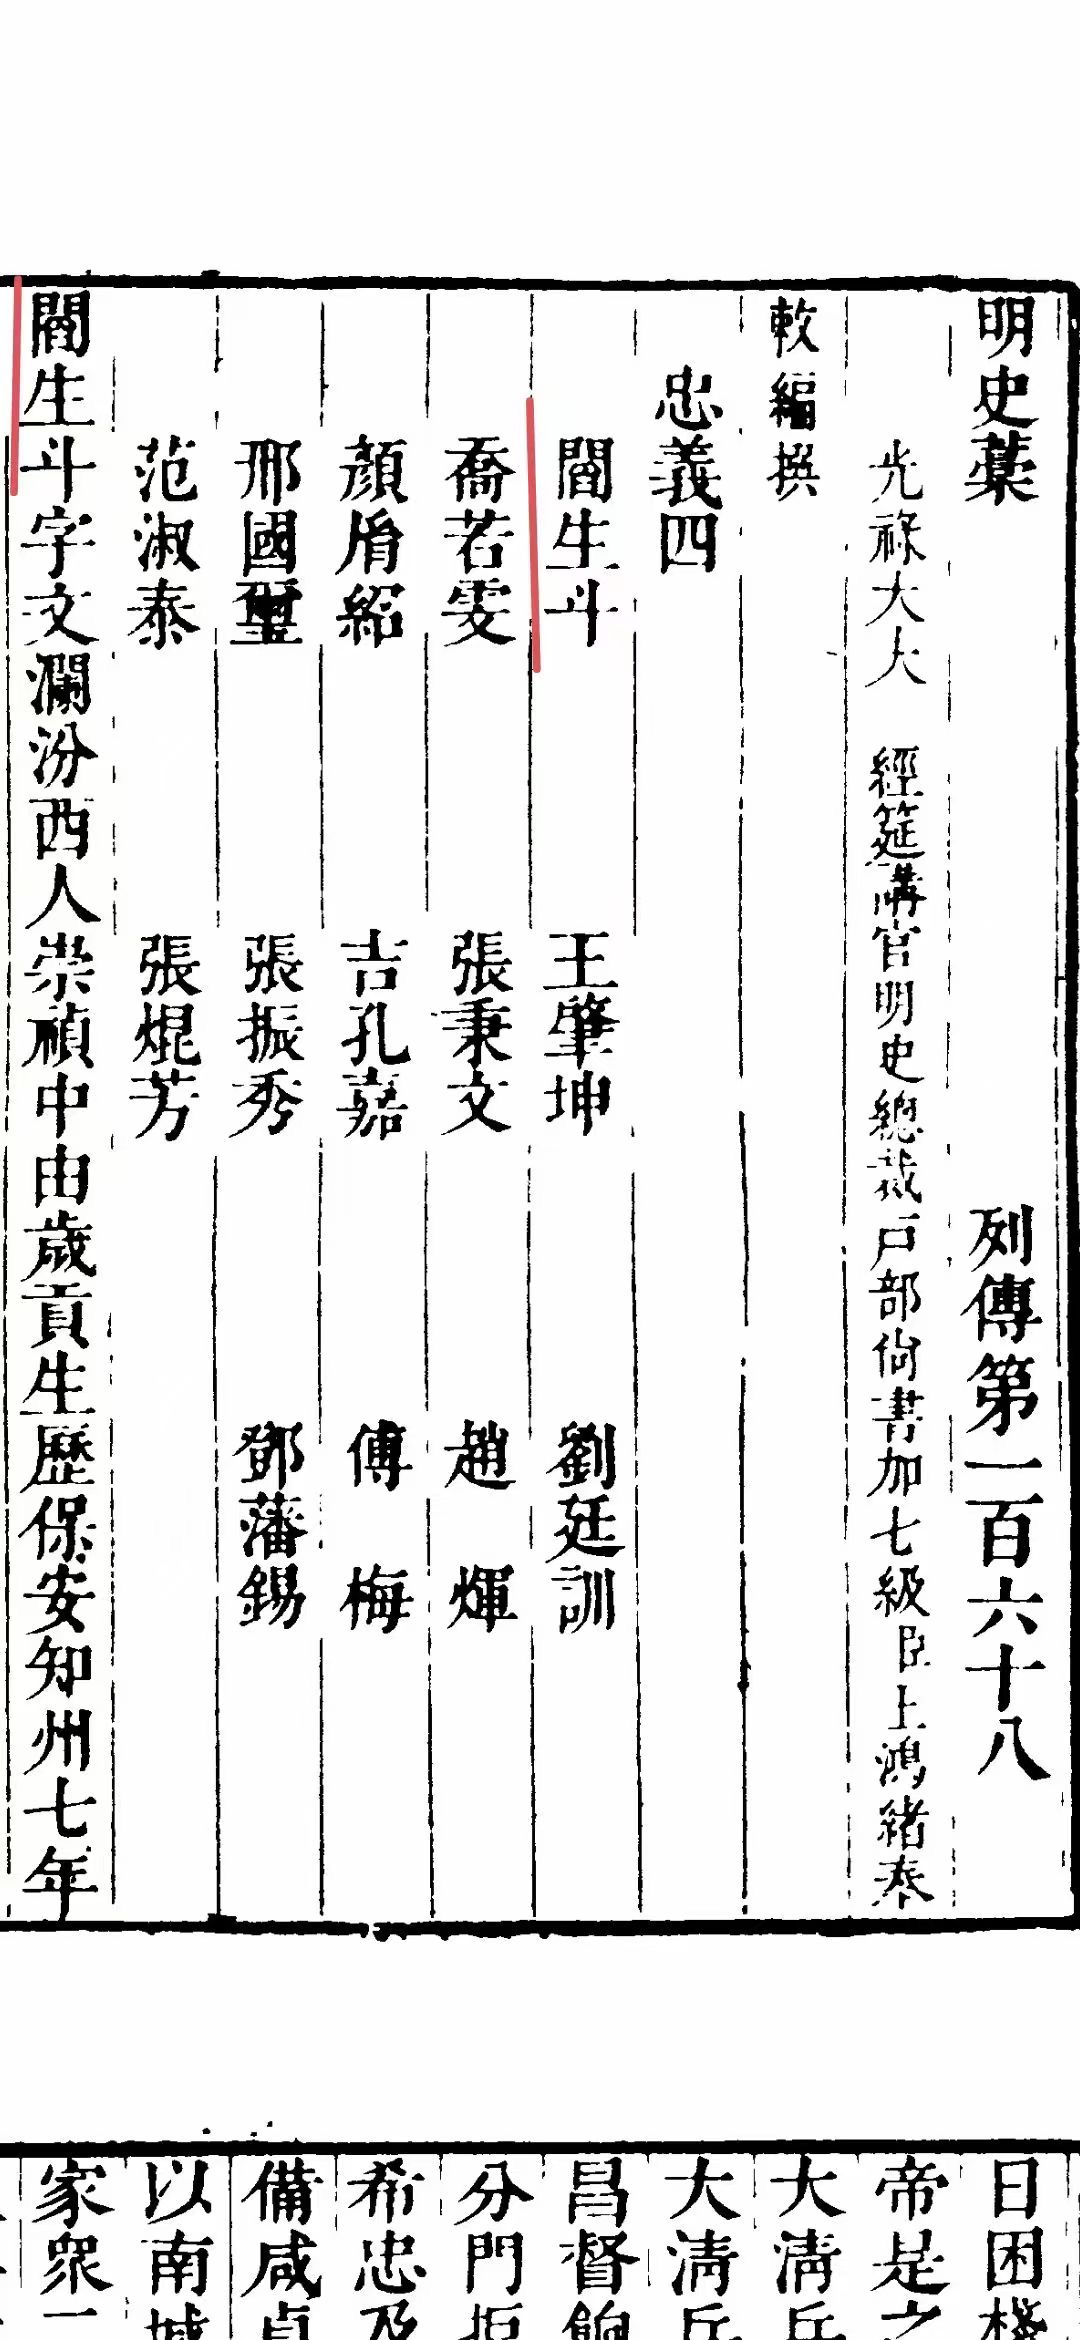 明史藳 列傳第一百六十八
光祿大大 經筵講官明史總裁戸部尙書加七級臣上鴻緒奉
敕編撰
忠義四
閻生斗 王肇坤 劉廷訓
喬若雯 張秉文 趙 煇
顏𦙍紹 吉孔嘉 傅 梅
邢國璽 張振秀 鄧藩錫
范淑泰 張焜芳
閻生斗字文瀾汾西人崇禎中由歲貢生歷保安知州七年
日困
帝是之
大淸兵
大淸兵
昌督餉
分門拒
希忠及
備咸貞
以南城
家衆一